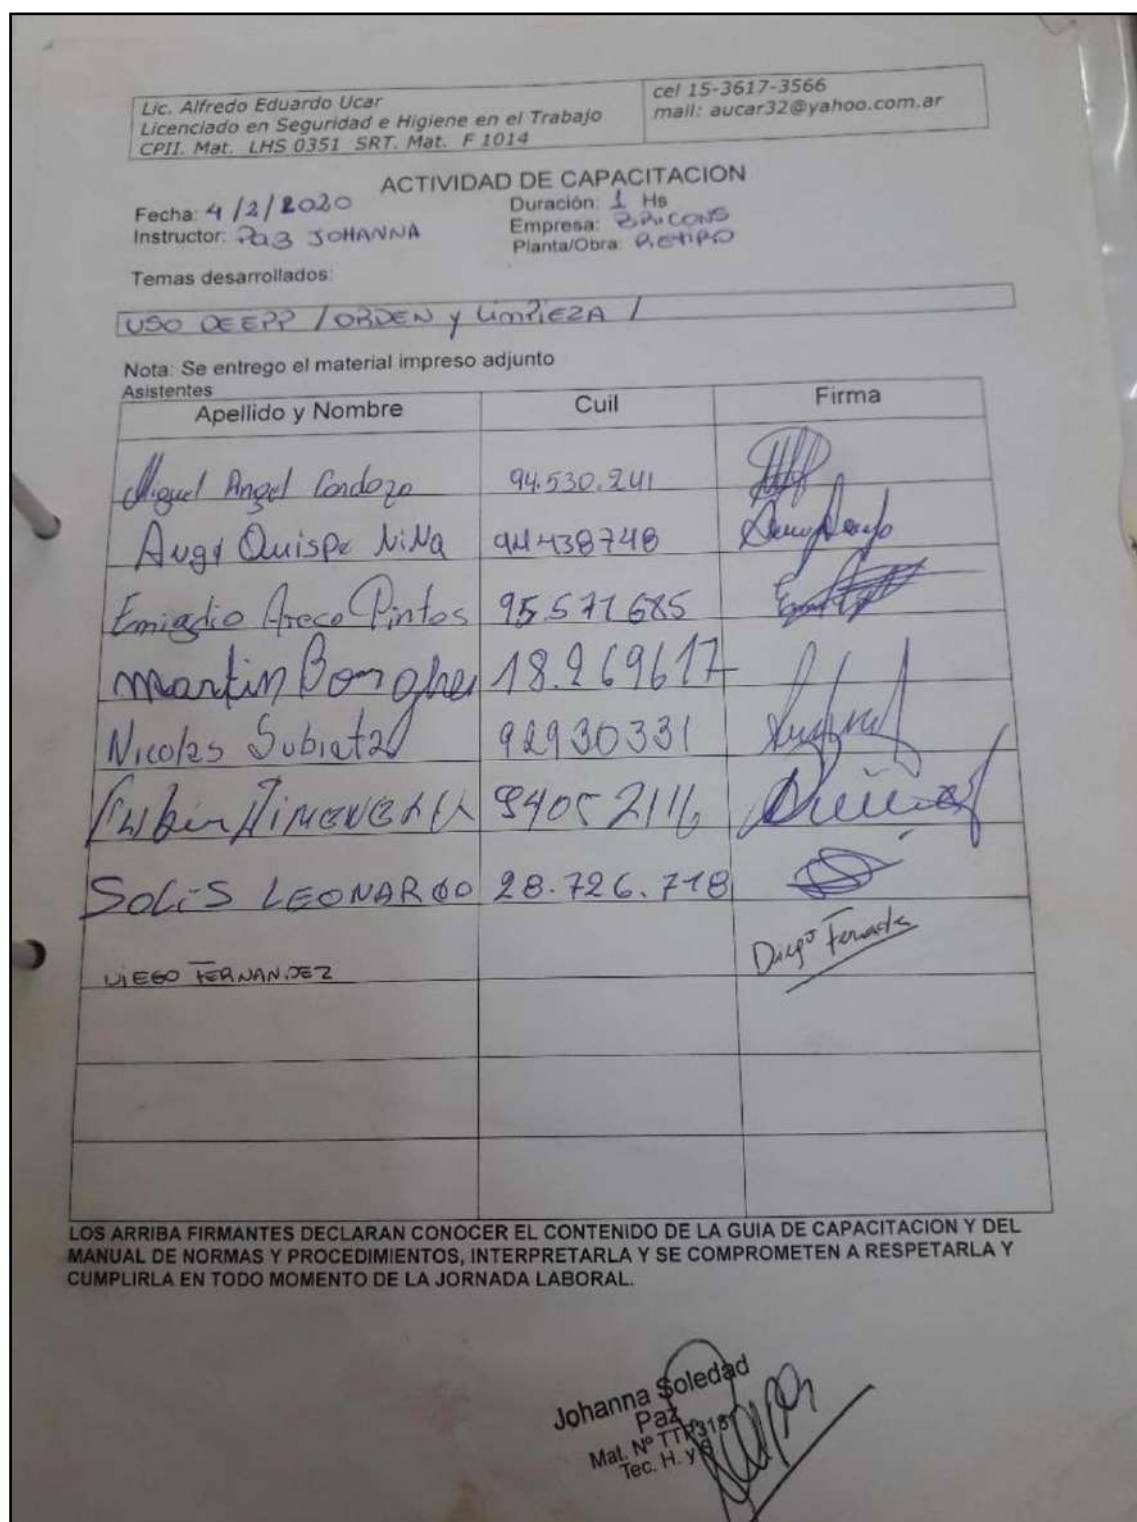 Lic. Alfredo Eduardo Ucar
Licenciado en Seguridad e Higiene en el Trabajo
CPII. Mat. LHS 0351 SRT. Mat. F 1014
cel 15-3617-3566
mail: aucar32@yahoo.com.ar
ACTIVIDAD DE CAPACITACION
Fecha: 4/2/2020
Duración: 1 Hs
Instructor: Paz JOHANNA
Empresa: BRICONS
Planta/Obra: RETIRO
Temas desarrollados:
USO DE EPP / ORDEN y LimPiEZA /
Nota: Se entrego el material impreso adjunto
Asistentes
Apellido y Nombre Cuil Firma
Miguel Angel Cardozo 94.530.241
Quispe NiNa 94438748
Emigdio Areco Pintos 95.571685
martin 18.269617
Nicolas Subieta 92930331
94052116
SOLiS LEONARDO 28.726.718
DiEGO FERNANDEZ Diego
LOS ARRIBA FIRMANTES DECLARAN CONOCER EL CONTENIDO DE LA GUIA DE CAPACITACION Y DEL
MANUAL DE NORMAS Y PROCEDIMIENTOS, INTERPRETARLA Y SE COMPROMETEN A RESPETARLA Y
CUMPLIRLA EN TODO MOMENTO DE LA JORNADA LABORAL.
Johanna Soledad
Paz
Mat. Nº
Tec. H. y